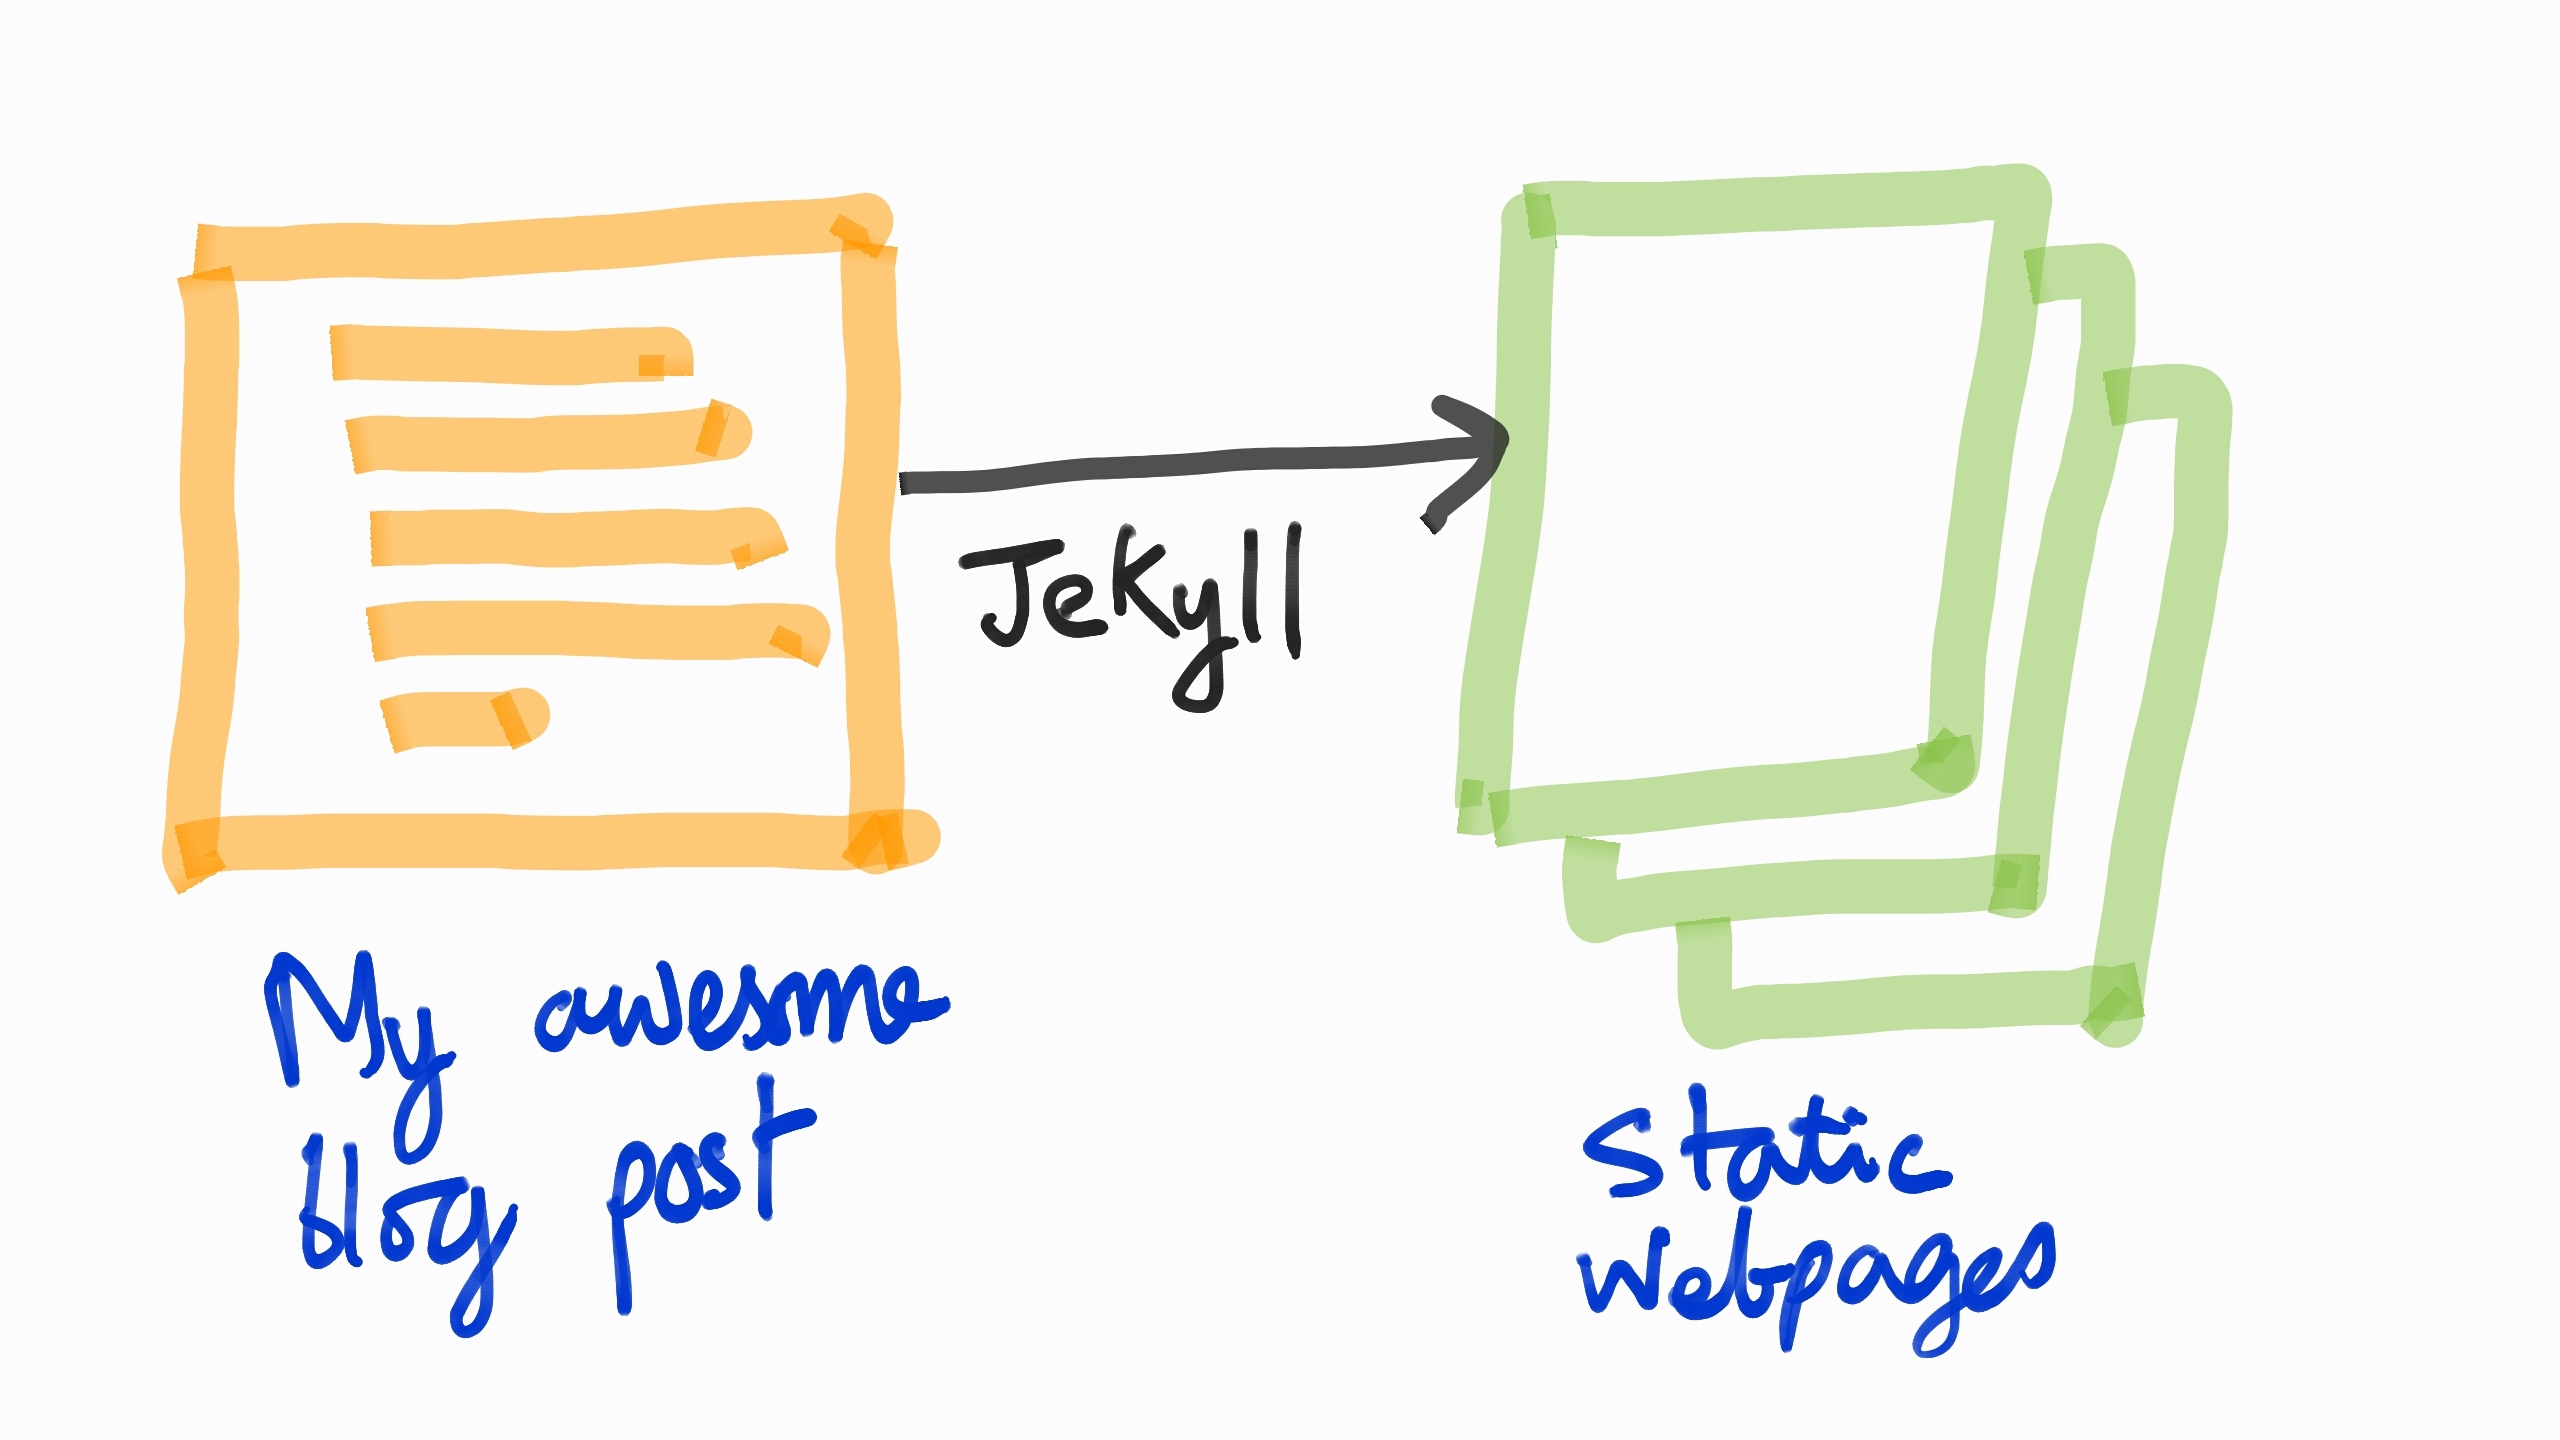 Jekyll
My awesome
blog post
Static
webpages